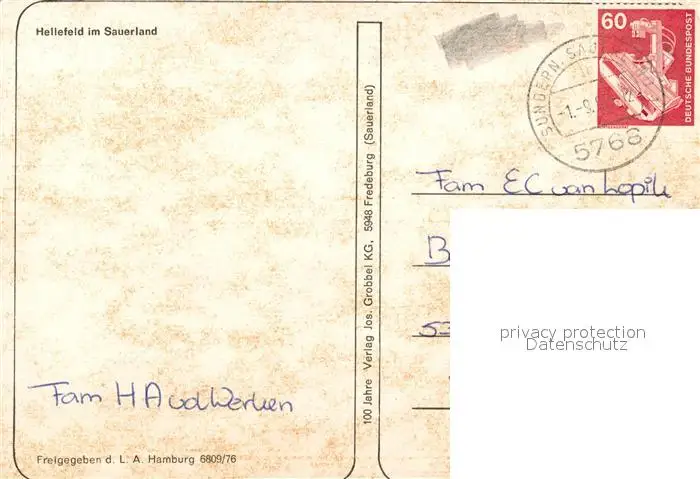 Hellefeld im Sauerland
Fam H A vd Werken
Freigegeben d. L. A. Hamburg 6809/76
100 Jahre Verlag Jos. Grobbel KG, 5948 Fredeburg (Sauerland)
60
DEUTSCHE BUNDESPOST
SUNDERN, SAU
-1.-9.
5768
Fam E C van Lopik
B
53
privacy protection
Datenschutz